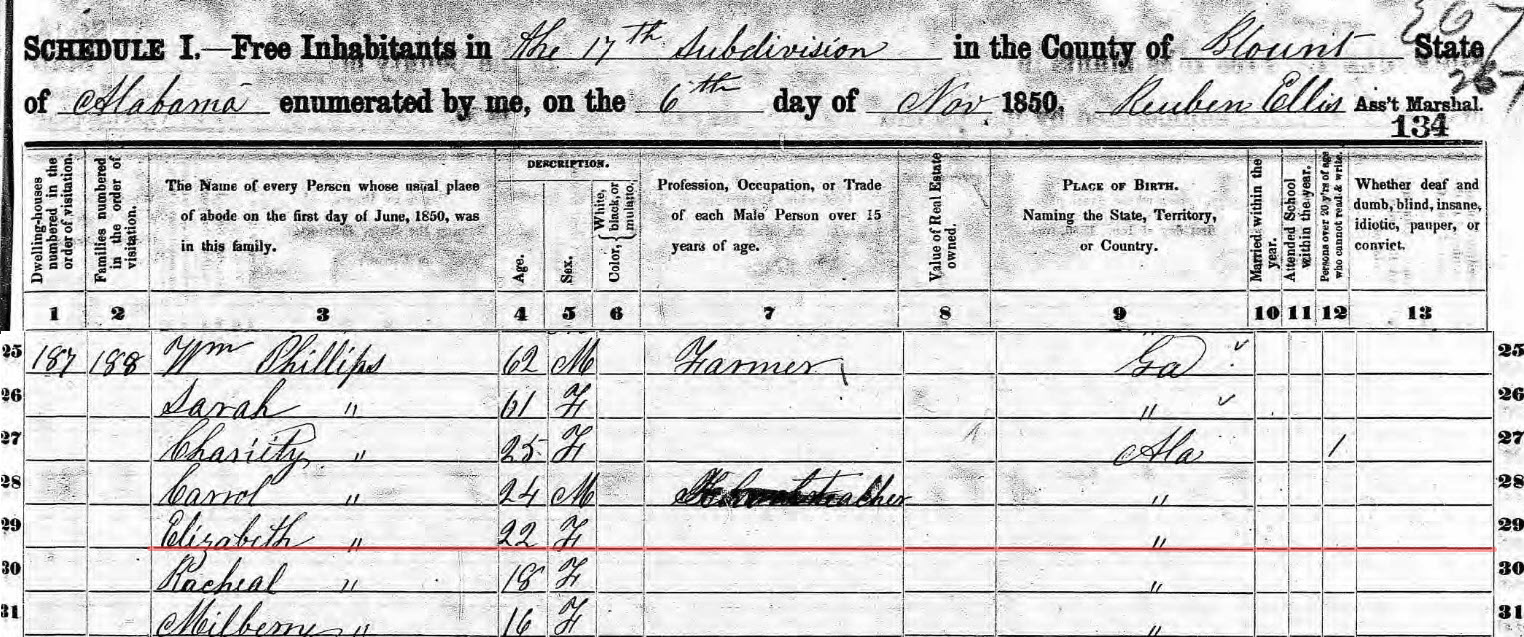 267
SCHEDULE I.—Free Inhabitants in the 17th Subdivision in the County of Blount State
267
of Alabama enumerated by me, on the 6th day of Nov. 1850. Reuben Ellis Ass't Marshal.
134
Dwelling-houses numbered in the order of visitation.
Families numbered in the order of visitation.
The Name of every Person whose usual place
of abode on the first day of June, 1850, was
in this family.
DESCRIPTION.
Age.
Sex.
Color, { White, black, or mulatto.
Profession, Occupation, or Trade
of each Male Person over 15
years of age.
Value of Real Estate owned.
PLACE OF BIRTH.
Naming the State, Territory,
or Country.
Married within the year.
Attended School within the year.
Persons over 20 y'rs of age who cannot read & write.
Whether deaf and
dumb, blind, insane,
idiotic, pauper, or
convict.
1 2 3 4 5 6 7 8 9 10 11 12 13
25 187 188 Wm Phillips 62 M Farmer Ga 25
26 Sarah " 61 F " 26
27 Charity " 25 F Ala 1 27
28 Carrol " 24 M " 28
29 Elizabeth " 22 F " 29
30 Racheal " 18 F " 30
31 Milberry " 16 F " 31